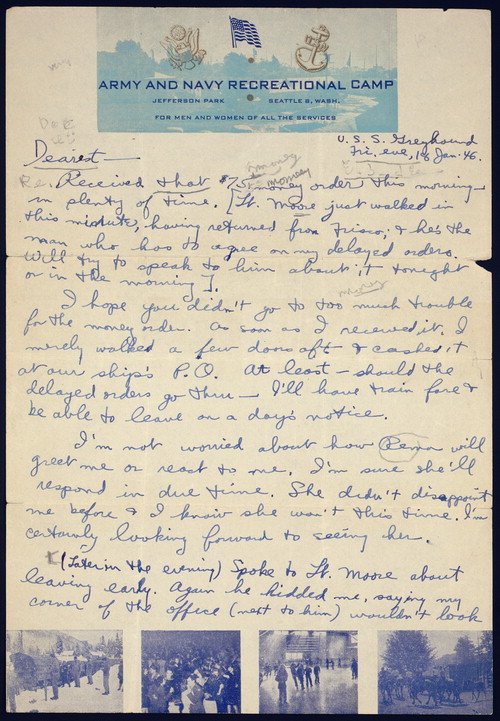 ARMY AND NAVY RECREATIONAL CAMP
JEFFERSON PARK SEATTLE 8, WASH.
FOR MEN AND WOMEN OF ALL THE SERVICES
U.S.S. Greyhound
Fri. eve, 18 Jan. '46.
Dearest —
Received that $75 money order this morning —
in plenty of time. [Lt. Moore just walked in
this minute, having returned from Frisco, & he's the
man who has to agree on my delayed orders.
Will try to speak to him about it tonight
or in the morning].
money
I hope you didn't go to too much trouble
for the money order. As soon as I received it, I
merely walked a few doors aft & cashed it
at our ship's P.O. At least — should the
delayed orders go thru — I'll have train fare &
be able to leave on a day's notice.
I'm not worried about how Rena will
greet me or react to me. I'm sure she'll
respond in due time. She didn't disappoint
me before & I know she won't this time. I'm
certainly looking forward to seeing her.
(Later in the evening) Spoke to Lt. Moore about
leaving early. Again he kidded me, saying my
corner of the office (next to him) wouldn't look